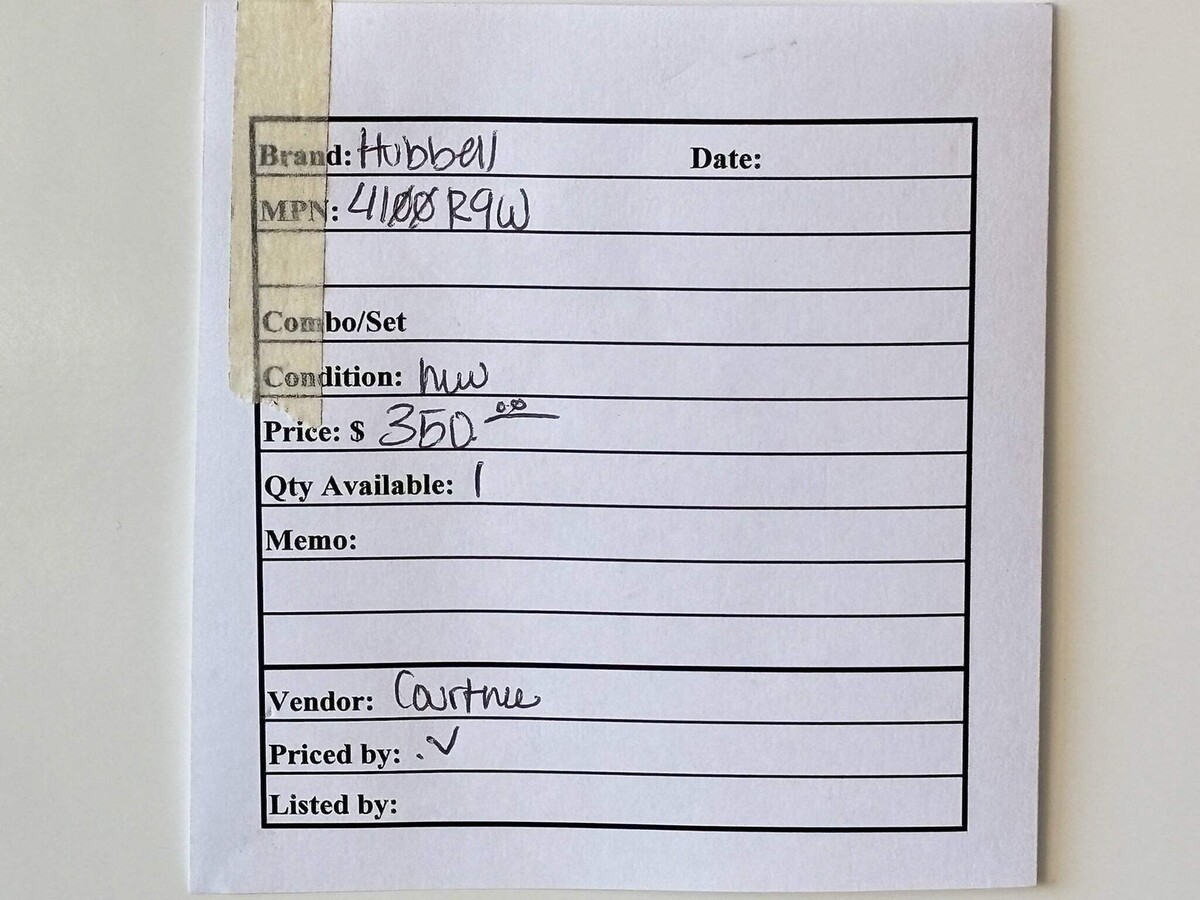 Brand: Hubbell Date:
MPN: 4100R9W
Combo/Set
Condition: new
Price: $ 350.00
Qty Available: 1
Memo:
Vendor: Courtnee
Priced by: .✓
Listed by: